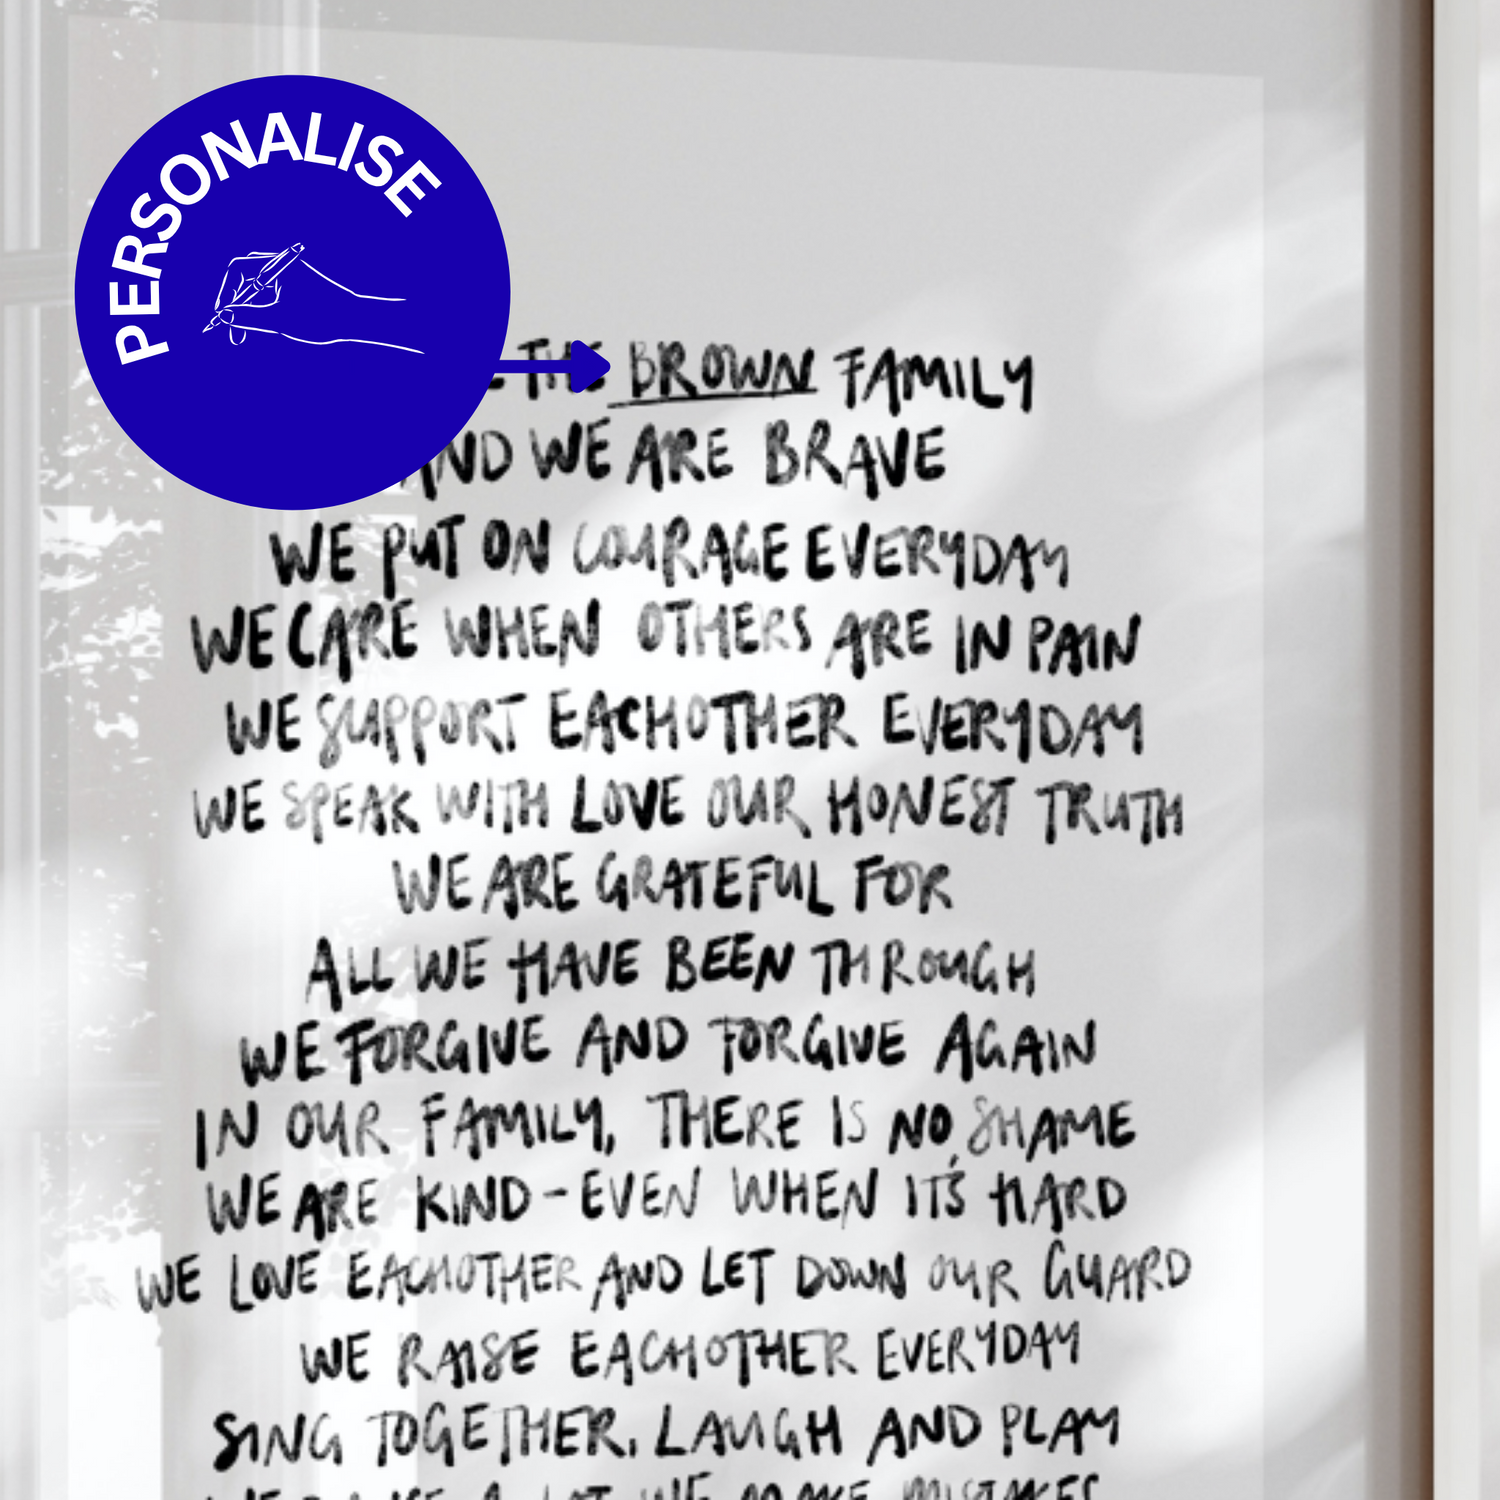 PERSONALISE
THE BROWN FAMILY
AND WE ARE BRAVE
WE PUT ON COURAGE EVERYDAY
WE CARE WHEN OTHERS ARE IN PAIN
WE SUPPORT EACHOTHER EVERYDAY
WE SPEAK WITH LOVE OUR HONEST TRUTH
WE ARE GRATEFUL FOR
ALL WE HAVE BEEN THROUGH
WE FORGIVE AND FORGIVE AGAIN
IN OUR FAMILY, THERE IS NO SHAME
WE ARE KIND - EVEN WHEN IT'S HARD
WE LOVE EACHOTHER AND LET DOWN OUR GUARD
WE RAISE EACHOTHER EVERYDAY
SING TOGETHER, LAUGH AND PLAY
A LOT WE MAKE MISTAKES